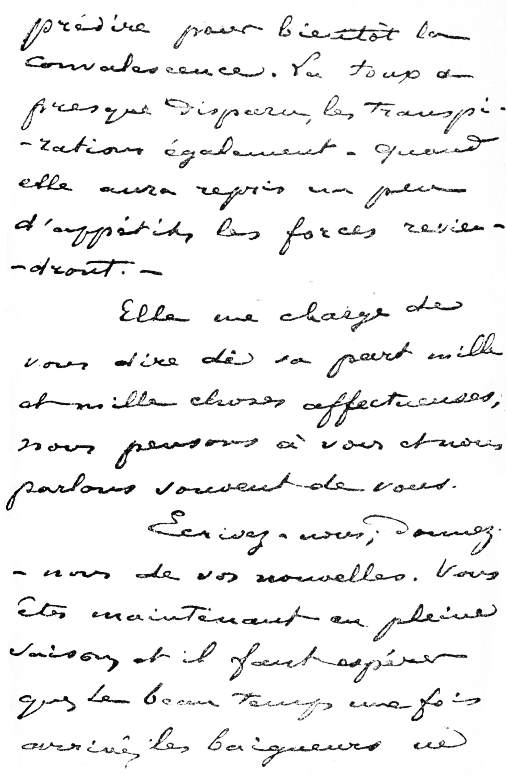 prédire pour bientôt la
convalescence. La toux a
presque disparu, les transpi-
-rations également - quand
elle aura repris un peu
d'appétit, les forces revien-
-dront. -
Elle me charge de
vous dire de sa part mille
et mille choses affectueuses;
nous pensons à vous et nous
parlons souvent de vous.
Ecrivez-nous; donnez-
-nous de vos nouvelles. Vous
êtes maintenant en pleine
saison, et il faut espérer
que, le beau temps une fois
arrivé, les baigneurs ne